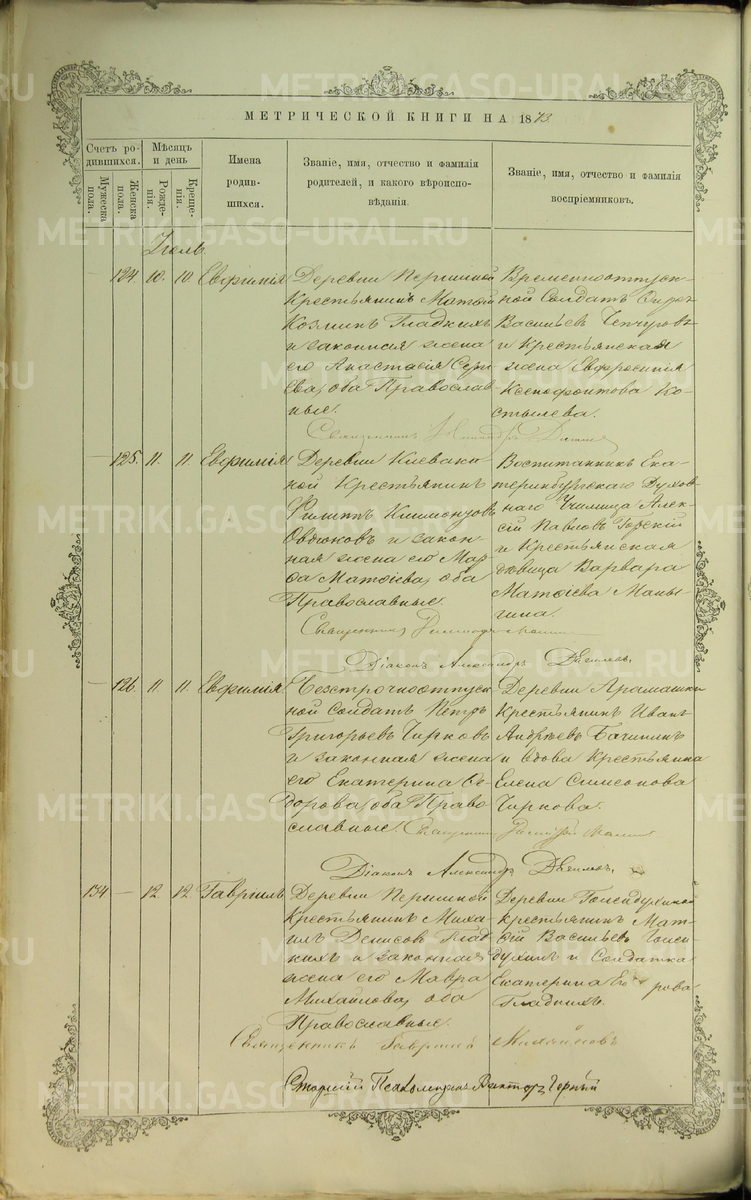 МЕТРИЧЕСКОЙ КНИГИ НА 1873.
Счетъ ро-
дившихся.
Мужеска
пола.
Женска
пола.
Мѣсяцъ
и день
Рожде-
нія.
Креще-
нія.
Имена
родив-
шихся.
Званіе, имя, отчество и фамилія
родителей, и какого вѣроиспо-
вѣданія.
Званіе, имя, отчество и фамилія
воспріемниковъ.
Іюль.
124. 10. 10. Евфимія
Деревни Першиной
Крестьянинъ Матѳій
Козминъ Гладкихъ
и законная жена
его Анастасія Сер
ева, оба Православ
ные.
Временноотпуск-
ной Солдатъ
Васильевъ
и Крестьянская
жена Евфросинія
Ксенофонтова Ко-
стылева.
Священникъ
125. 11. 11. Евфимія
Деревни Клеваки-
ной Крестьянинъ
Филиппъ Климентовъ
Овдюковъ и закон-
ная жена его Мар-
ѳа Матѳіева, оба
Православные.
Воспитанникъ Ека-
теринбургскаго Духов-
наго Училища Алек-
сій Павловъ Горскій
и Крестьянская
дѣвица Варвара
Матѳіева Маны-
гина.
Священникъ
Діаконъ Александръ
126. 11. 11. Евфимія
Безсрочноотпуск-
ной Солдатъ Петръ
Григорьевъ Чирковъ
и законная жена
его Екатерина Ѳе-
дорова, оба Право
славные.
Деревни Арамашки
Крестьянинъ Иванъ
Андреевъ Бачининъ
и вдова Крестьянка
Елена Симеонова
Чиркова.
Священникъ
Діаконъ Александръ
134 — 12. 12. Гавріилъ
Деревни Першиной
Крестьянинъ Миха-
илъ Денисовъ Глад
кихъ и законная
жена его Мавра
Михайлова, оба
Православные.
Деревни
Крестьянинъ Мат-
ѳій Васильевъ
и Солдатка
Екатерина
Гладкихъ.
Священникъ Гавріилъ
Старшій Псаломщикъ Викторъ Черный
METRIKI.GASO-URAL.RU